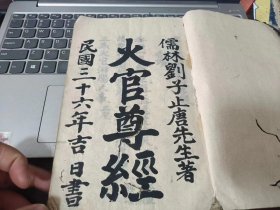 儒林劉子止唐先生著
火官尊經
民國三十六年吉日書